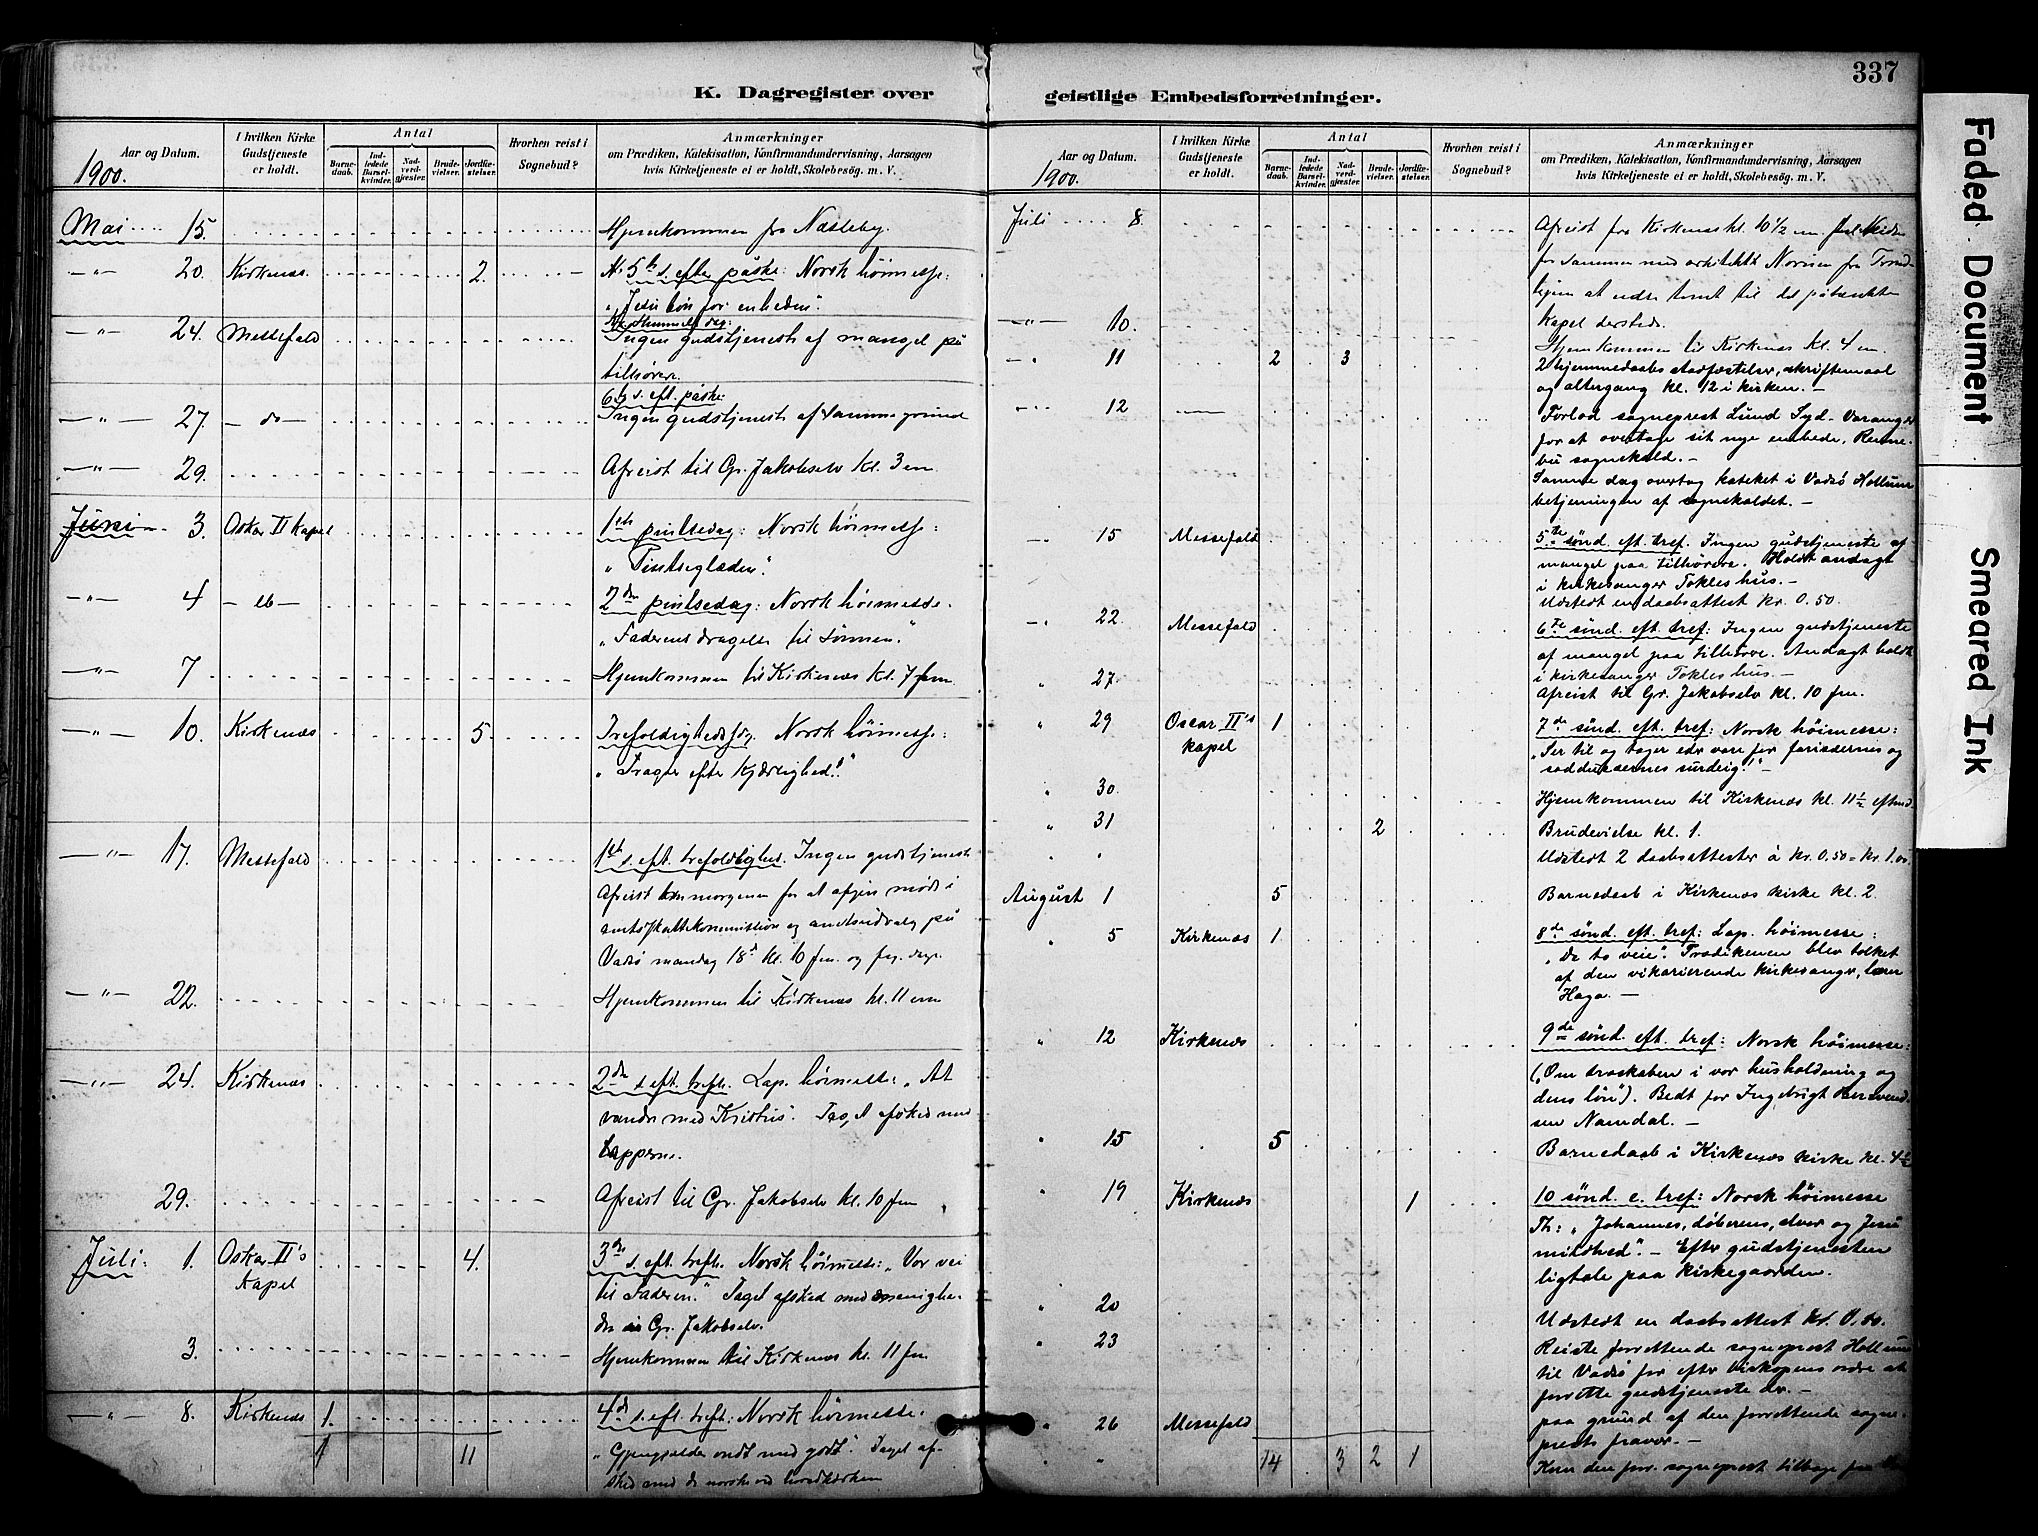 337
K. Dagregister over geistlige Embedsforretninger.
Aar og Datum.
1900.
I hvilken Kirke Gudstjeneste er holdt.
Antal
Barnedaab.
Indledede Barselkvinder.
Nadverdgjester.
Brudevielser.
Jordfæstelser.
Hvorhen reist i Sognebud?
Anmærkninger
om Prædiken, Katekisation, Konfirmandundervisning, Aarsagen
hvis Kirketjeneste ei er holdt, Skolebesøg. m. V.
Mai 15. Hjemkommen fra Næsseby.
-"- 20. Kirkenæs. 2. 5te s. efter påske: Norsk høimesse:
"Jesu bøn for enheden".
-"- 24. Messefald Kr. Himmelf. dag:
Ingen gudstjeneste af mangel på
tilhørere.
6te s. eft. påske:
-"- 27. - do - Ingen gudstjeneste af samme grund
-"- 29. Afreist til Gr. Jakobselv kl. 3 em.
Juni 3. Oskar II kapel 1ste pintsedag: Norsk høimesse:
"Pintseglæden".
-"- 4 - do - 2den pintsedag: Norsk høimesse.
"Faderens dragelse til Sønnen."
-"- 7 Hjemkommen til Kirkenæs kl. 7 fm
-"- 10. Kirkenæs 5 Trefoldighedsfdg. Norsk høimesse:
"Tragter efter kjærlighed!"
-"- 17. Messefald 1ste s. eft. trefoldighed. Ingen gudstjeneste
Afreist om morgenen for at afgive møde i
amtsskattekommission og amtsudvalg på
Vadsø mandag 18de kl. 10 fm. og flg. dage.
-"- 22. Hjemkommen til Kirkenæs kl. 11 em
-"- 24. Kirkenæs 2den s. eft. trefh. Lap. høimesse: "At
vandre med Kristus". Taget afsked med
Lapperne.
29. Afreist til Gr. Jakobselv kl. 10 fm
Juli: 1. Oskar II's kapel 4. 3die s. eft. trefh. Norsk høimesse: "Vor vei
til Faderen." Taget afsked med menighe-
den i Gr. Jakobselv.
3. Hjemkommen til Kirkenæs kl. 11 fm
-"- 8. Kirkenæs 1. 4de s. eft. trefh.: Norsk høimesse.
1 11 "Gjengjælder ondt med godt". Taget af-
sked med de norske ved hovedkirken
Aar og Datum.
1900.
I hvilken Kirke Gudstjeneste er holdt.
Antal
Barnedaab.
Indledede Barselkvinder.
Nadverdgjester.
Brudevielser.
Jordfæstelser.
Hvorhen reist i Sognebud?
Anmærkninger
om Prædiken, Katekisation, Konfirmandundervisning, Aarsagen
hvis Kirketjeneste ei er holdt, Skolebesøg, m. V.
Juli 8. Afreist fra Kirkenæs kl. 10 1/2 em. til Neiden
for sammen med arkitekt Norum fra Trond-
hjem at udse tomt til det påtænkte
kapel dersteds.
-"- 10. Hjemkommen til Kirkenæs kl. 4 em.
-"- 11 2 3 2 hjemmedaabs stadfæstelser, skriftemaal
og altergang kl. 12 i kirken. -
12 Forlod sogneprest Lund Syd-Varanger
for at overtage sit nye embede, Renne-
bu sognekald. -
Samme dag overtog kateket i Vadsø Hollum
betjeningen af sognekaldet. -
15 Messefald 5te sønd. eft. tref. Ingen gudstjeneste af
mangel paa tilhørere. Holdt andagt
i kirkesanger Tokles hus. -
Udstedt en daabsattest kr. 0.50.
22. Messefald 6te sønd. eft. tref: Ingen gudstjeneste
af mangel paa tilhørere. Andagt holdt
i kirkesanger Tokles hus. -
" 27. Afreist til Gr. Jakobselv kl. 10 fm.
" 29 Oscar II's kapel 1 7de sønd. eft. tref: Norsk høimesse:
"Ser til og tager eder vare for farisæernes og
saddukæernes surdeig!" -
" 30. Hjemkommen til Kirkenæs kl. 11 1/2 eftmd.
" 31 2 Brudevielse kl. 1.
" " Udstedt 2 daabsattester à kr. 0.50 = kr. 1.00
August 1 5 Barnedaab i Kirkenæs kirke kl. 2
" 5 Kirkenæs 1 8de sønd. eft. tref: Lap. høimesse:
"De to veie". Prædikenen blev tolket
af den vikarierende kirkesanger, lærer
Haga. -
" 12 Kirkenæs 9de sønd. eft. tref: Norsk høimesse:
("Om troskaben i vor husholdning og
dens løn"). Bedt for Ingebrigt
Namdal. -
" 15 5 Barnedaab i Kirkenæs kirke kl. 4 1/2
" 19 Kirkenæs 1 10 sønd. e. tref: Norsk høimesse
Th: "Johannes, døberens, elver og Jesu
mildhed". - Efter gudstjenesten
ligtale paa kirkegaarden.
" 20 Udstedt en daabsattest kr. 0.50.
" 23 Reiste forrettende sogneprest Hollum
til Vadsø for efter biskopens ordre at
forrette gudstjeneste der. -
" 26 Messefald paa grund af den forrettende sogne-
prests fravær. -
" " 14 3 2 1 Kom den forr. sogneprest tilbage fra
Faded Document
Smeared Ink